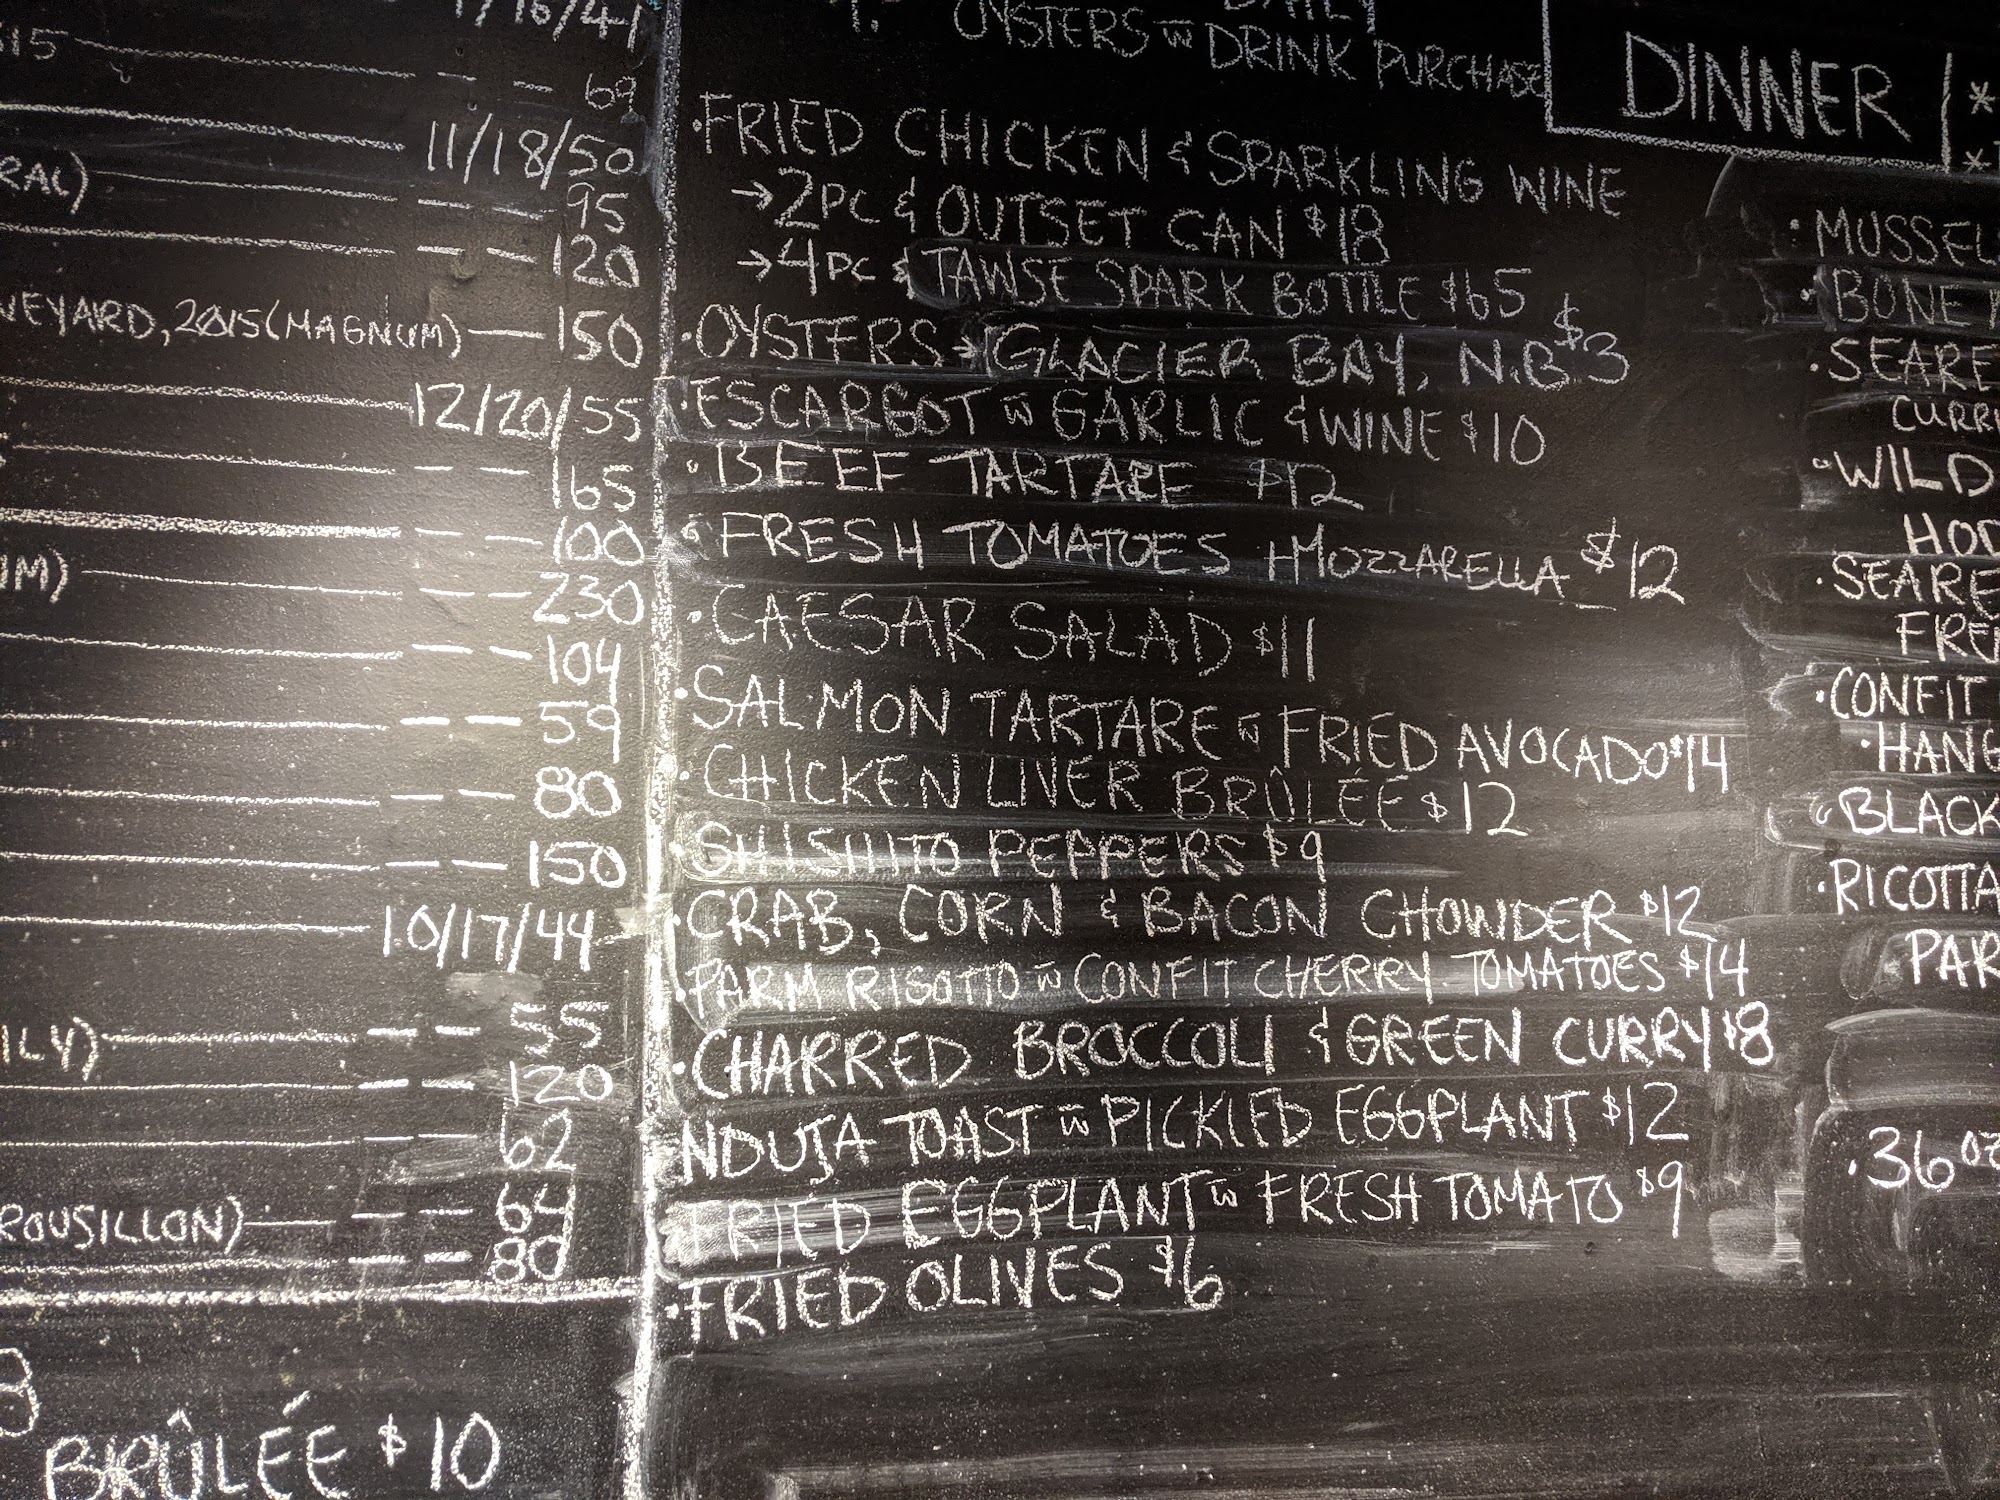 9/16/41
2015 69
11/18/50
RAL) 95
120
NEYARD, 2015 (MAGNUM) 150
12/20/55
165
100
UM) 230
104
59
80
150
10/17/44
ILY) 55
120
62
ROUSILLON) 64
80
BRÛLÉE $10
DAILY
OYSTERS w DRINK PURCHASE
·FRIED CHICKEN & SPARKLING WINE
→2PC & OUTSET CAN $18
→4PC & TAWSE SPARK BOTTLE $65
·OYSTERS → GLACIER BAY, N.B. $3
·ESCARGOT w GARLIC & WINE $10
·BEEF TARTARE $12
·FRESH TOMATOES + MOZZARELLA $12
·CAESAR SALAD $11
·SALMON TARTARE w FRIED AVOCADO $14
·CHICKEN LIVER BRÛLÉE $12
·SHISHITO PEPPERS $9
·CRAB, CORN & BACON CHOWDER $12
·PARM RISOTTO w CONFIT CHERRY TOMATOES $14
·CHARRED BROCCOLI & GREEN CURRY $8
NDUJA TOAST w PICKLED EGGPLANT $12
FRIED EGGPLANT w FRESH TOMATO $9
·FRIED OLIVES $6
DINNER
·MUSSEL
·BONE
·SEARE
CURR
·WILD
HOD
·SEARE
FRE
·CONFIT
·HANG
·BLACK
·RICOTTA
PAR
·36 OZ